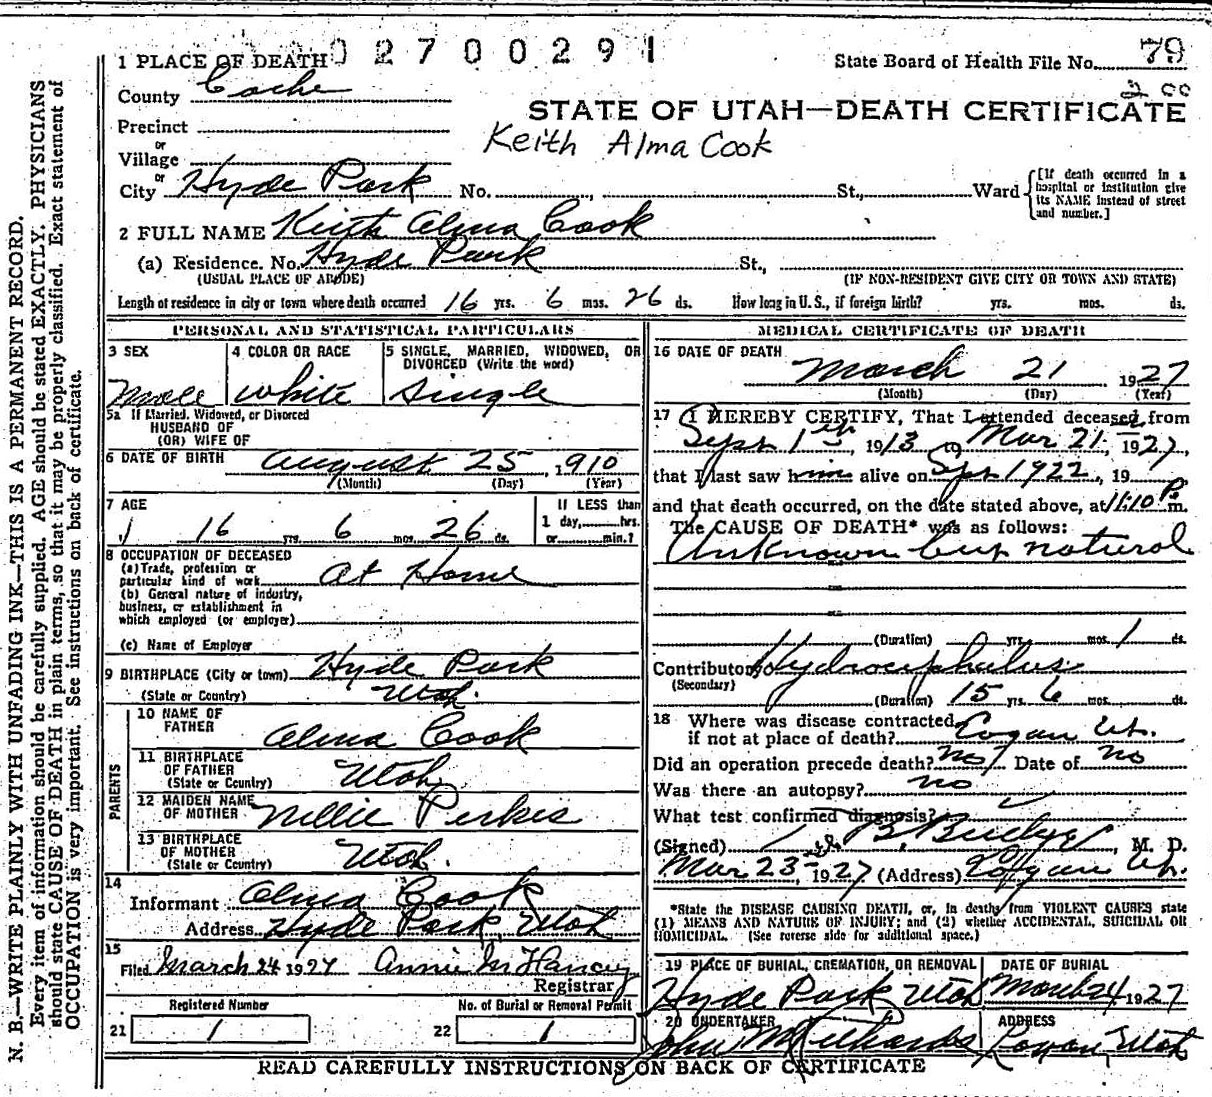 02700291
1 PLACE OF DEATH
State Board of Health File No. 79
2 00
County Cache
STATE OF UTAH—DEATH CERTIFICATE
Precinct
Keith Alma Cook
or
Village
or
City Hyde Park No. , St., Ward
[If death occurred in a hospital or institution give its NAME instead of street and number.]
2 FULL NAME Keith Alma Cook
(a) Residence. No. Hyde Park St.,
(USUAL PLACE OF ABODE) (IF NON-RESIDENT GIVE CITY OR TOWN AND STATE)
Length of residence in city or town where death occurred 16 yrs. 6 mos. 26 ds. How long in U. S., if foreign birth? yrs. mos. ds.
PERSONAL AND STATISTICAL PARTICULARS
3 SEX
Male
4 COLOR OR RACE
white
5 SINGLE, MARRIED, WIDOWED, OR DIVORCED (Write the word)
Single
5a If Married, Widowed, or Divorced
HUSBAND OF
(OR) WIFE OF
6 DATE OF BIRTH August 25, 1910
(Month) (Day) (Year)
7 AGE
16 yrs. 6 mos. 26 ds.
If LESS than
1 day, hrs.
or min.?
8 OCCUPATION OF DECEASED
(a) Trade, profession or
particular kind of work At Home
(b) General nature of industry,
business, or establishment in
which employed (or employer)
(c) Name of Employer
9 BIRTHPLACE (City or town) Hyde Park
(State or Country) Utah.
PARENTS
10 NAME OF
FATHER Alma Cook
11 BIRTHPLACE
OF FATHER Utah
(State or Country)
12 MAIDEN NAME
OF MOTHER Nellie Perkes
13 BIRTHPLACE
OF MOTHER Utah.
(State or Country)
14
Informant Alma Cook
Address Hyde Park, Utah
15
Filed March 24 1927 Annie M Hancey
Registrar
Registered Number
21 1
No. of Burial or Removal Permit
22 1
MEDICAL CERTIFICATE OF DEATH
16 DATE OF DEATH
March 21 1927
(Month) (Day) (Year)
17 I HEREBY CERTIFY, That I attended deceased from
Sept 1st, 1913 to Mar 21 – 1927,
that I last saw him alive on Sept 1922, 19
and that death occurred, on the date stated above, at 11:10 P. m.
The CAUSE OF DEATH* was as follows:
Unknown but natural
(Duration) yrs. mos. 1 ds.
Contributory Hydrocephalus
(Secondary)
(Duration) 15 yrs. 6 mos. ds.
18 Where was disease contracted
if not at place of death? Logan Ut.
Did an operation precede death? No Date of no
Was there an autopsy? no
What test confirmed diagnosis?
(Signed) Budge, M. D.
Mar 23–, 1927 (Address) Logan Ut.
*State the DISEASE CAUSING DEATH, or, in deaths from VIOLENT CAUSES state
(1) MEANS AND NATURE OF INJURY; and (2) whether ACCIDENTAL, SUICIDAL OR
HOMICIDAL. (See reverse side for additional space.)
19 PLACE OF BURIAL, CREMATION, OR REMOVAL
Hyde Park Utah
DATE OF BURIAL
March 24 1927
20 UNDERTAKER
John Richards
ADDRESS
Logan, Utah
READ CAREFULLY INSTRUCTIONS ON BACK OF CERTIFICATE
N. B.—WRITE PLAINLY WITH UNFADING INK—THIS IS A PERMANENT RECORD.
Every item of information should be carefully supplied. AGE should be stated EXACTLY. PHYSICIANS
should state CAUSE OF DEATH in plain terms, so that it may be properly classified. Exact statement of
OCCUPATION is very important. See instructions on back of certificate.